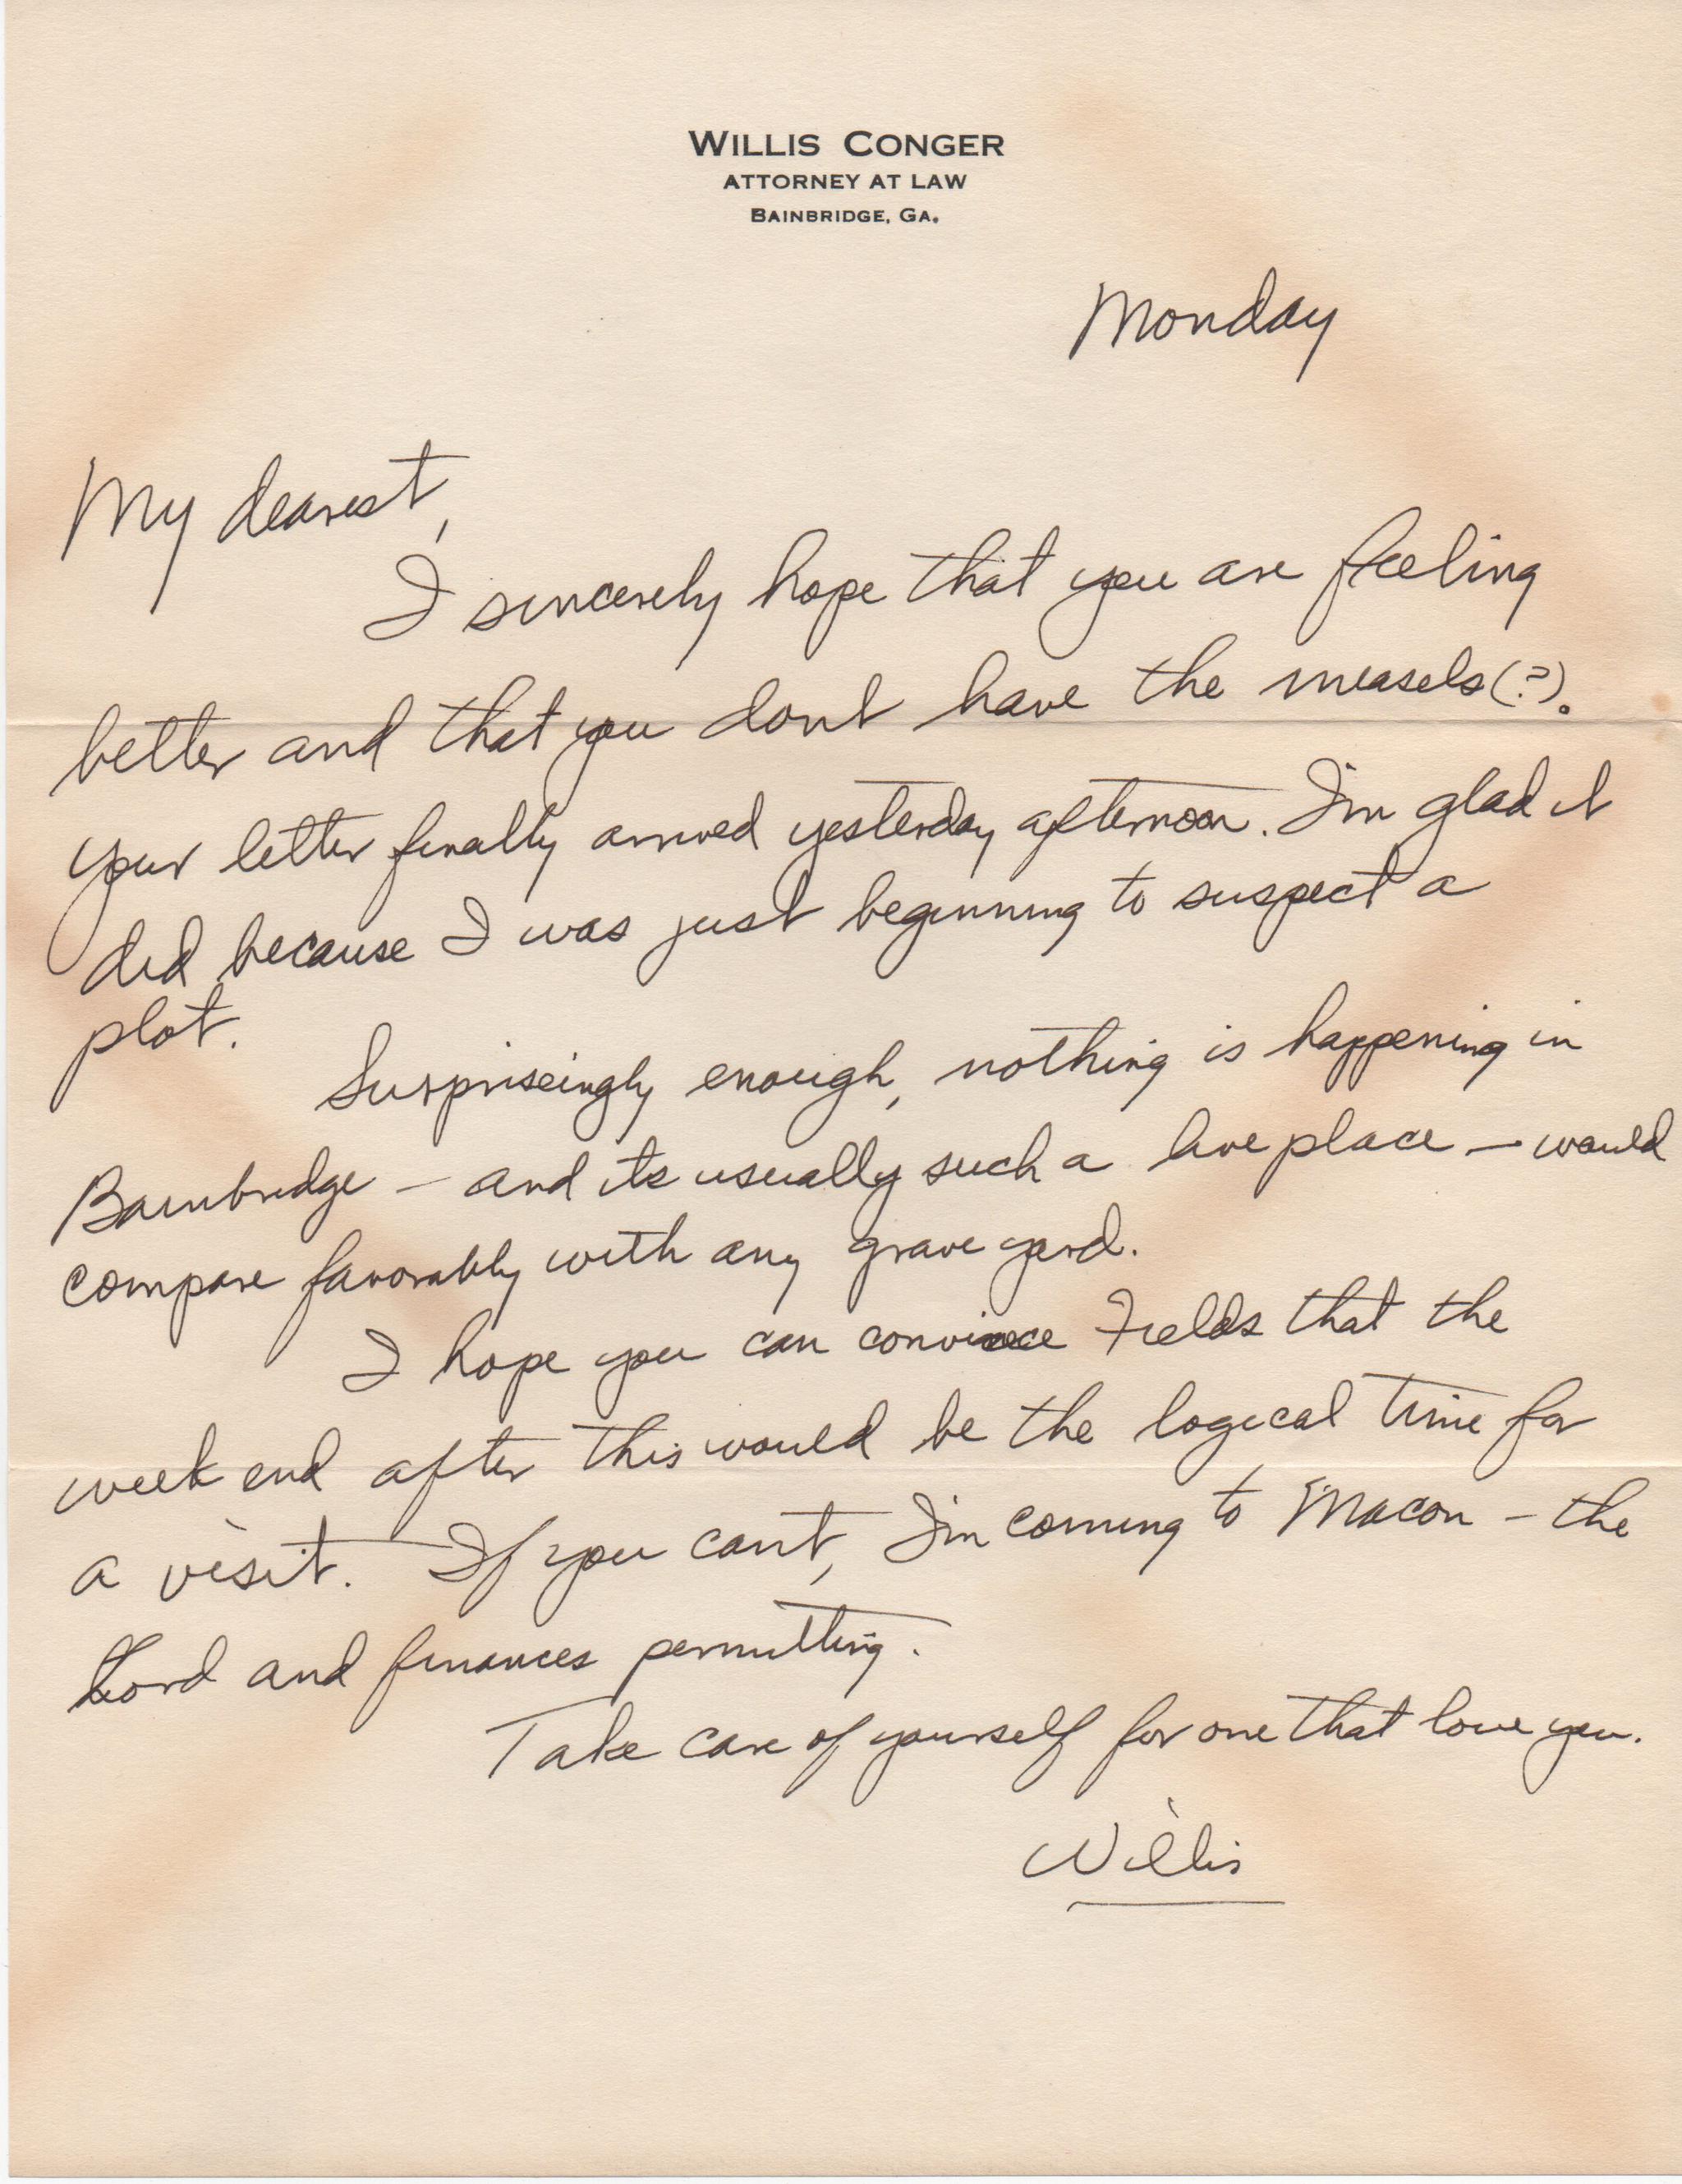 WILLIS CONGER
ATTORNEY AT LAW
BAINBRIDGE, GA.
Monday
My dearest,
I sincerely hope that you are feeling
better and that you dont have the measels(?).
Your letter finally arrived yesterday afternoon. I'm glad it
did because I was just beginning to suspect a
plot.
Surpriseingly enough, nothing is happening in
Bainbridge – and its usually such a live place – would
compare favorably with any grave yard.
I hope you can convince Fields that the
week end after this would be the logical time for
a visit. If you can't, I'm coming to Macon – the
Lord and finances permitting.
Take care of yourself for one that love you.
Willis